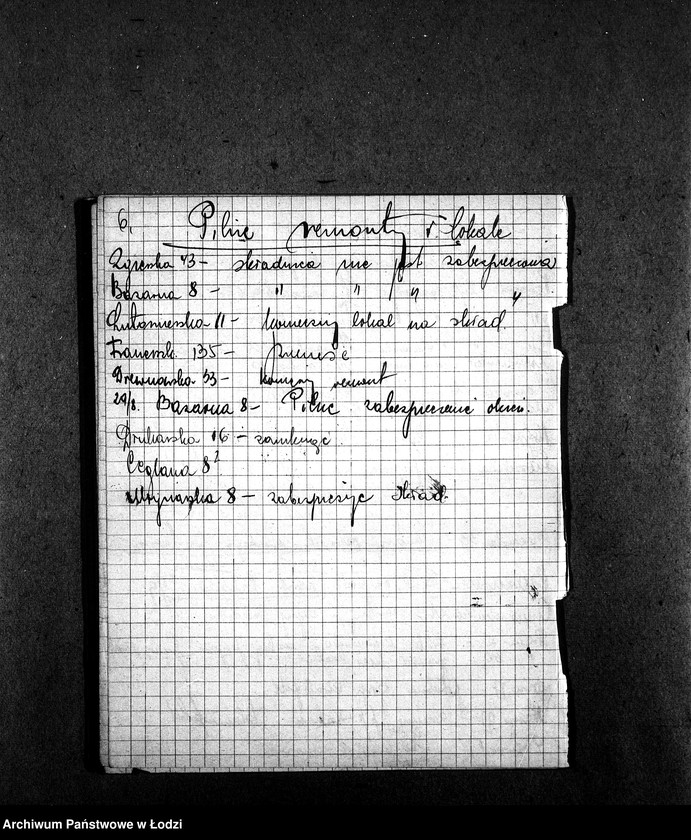 6.
Pilne remonty i lokale
Zgierska 43 - składnica nie jest zabezpieczona
Bazarna 8 - " " " "
Lutomierska 11 - lokal na skład.
Francisk. 135 - przenieść
Drewnowska 33 - remont
29/8. Bazarna 8 - Pilne zabezpieczenie okien.
Drukarska 16 -
Ceglana 8
Młynarska 8 - zabezpieczyć skład.
Archiwum Państwowe w Łodzi